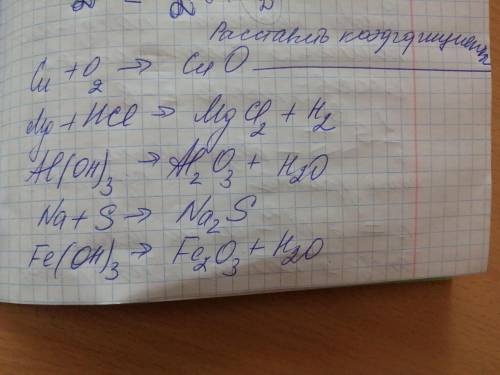 Расставить коэффициенты
Cu + O₂ → CuO
Mg + HCl → MgCl₂ + H₂
Al(OH)₃ → Al₂O₃ + H₂O
Na + S → Na₂S
Fe(OH)₃ → Fe₂O₃ + H₂O